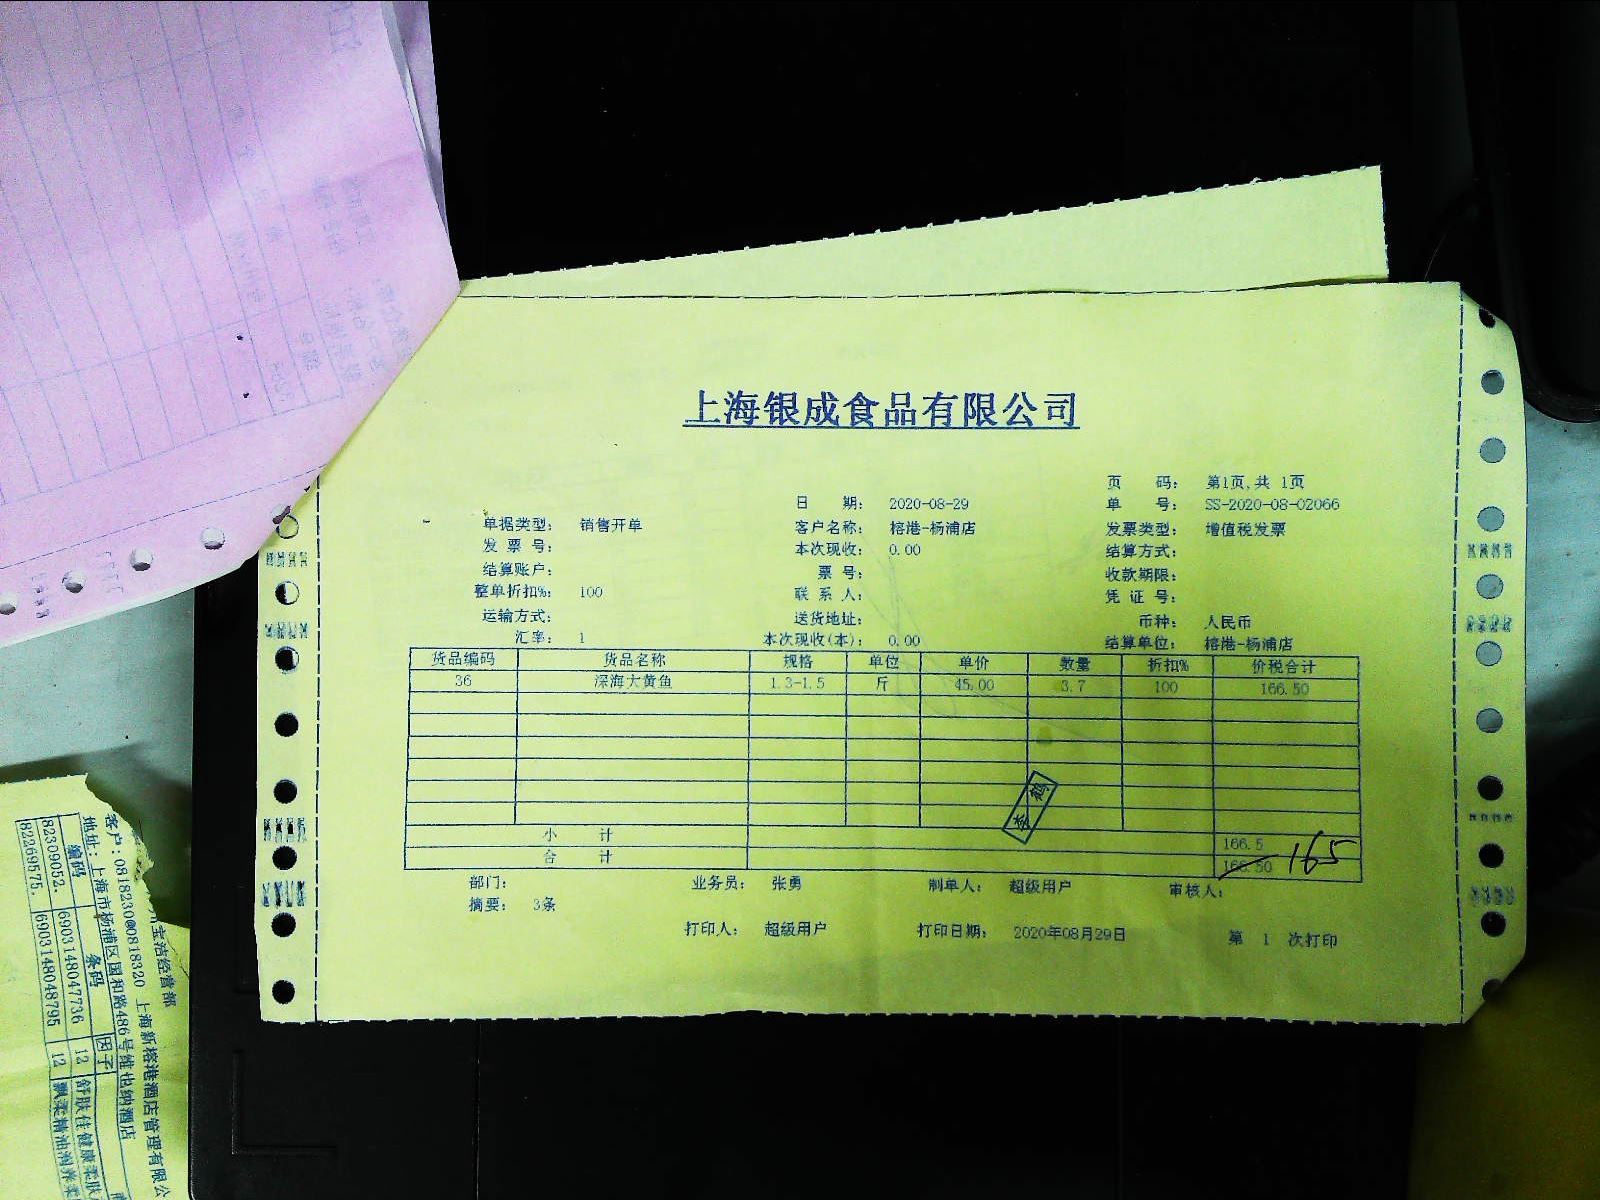 上海银成食品有限公司
页 码: 第1页,共 1页
日 期: 2020-08-29 单 号: SS-2020-08-02066
单据类型: 销售开单 客户名称: 榕港-杨浦店 发票类型: 增值税发票
发 票 号: 本次现收: 0.00 结算方式:
结算账户: 票 号: 收款期限:
整单折扣%: 100 联 系 人: 凭 证 号:
运输方式: 送货地址: 币种: 人民币
汇率: 1 本次现收(本): 0.00 结算单位: 榕港-杨浦店
货品编码 货品名称 规格 单位 单价 数量 折扣% 价税合计
36 深海大黄鱼 1.3-1.5 斤 45.00 3.7 100 166.50
李 鹤
小 计 166.5
合 计 166.50 165
部门: 业务员: 张勇 制单人: 超级用户 审核人:
摘要: 3条
打印人: 超级用户 打印日期: 2020年08月29日 第 1 次打印
宝洁经营部
客户:0818230@0818320 上海新榕港酒店管理有限公
地址:上海市杨浦区国和路486号维也纳酒店
编码 条码 因子
82309052. 6903148047736 12 舒肤佳健康柔肤
82269575. 6903148048795 12 飘柔精油润养柔